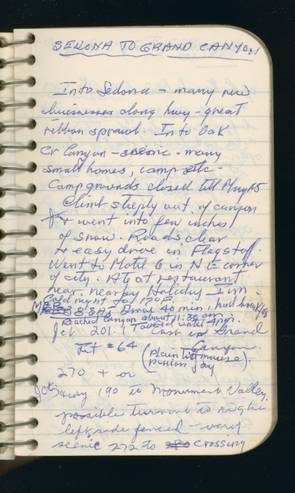 SEDONA TO GRAND CANYON
Into Sedona - many new
businesses along hwy - great
ribbon sprawl. Into Oak
Cr Canyon - scenic - many
small homes, camp etc -
Campgrounds closed till May 15
Climb steeply out of canyon
& went into few inches
of snow. Roads clear
& easy drive in Flagstaff
Went to Motel 6 in N E corner
of city. Ate at restaurant
near, nearby Holiday Inn
Cold night
8:30 Drove 40 min.
Reached Canyon about 11:30
Jct. 201.9
East in Grand
Canyon
Lot # 64
(Plain titmouse)
pinyon jay
270 + or
Jct hwy 190 to Monument Valley,
possible turnout to right
left side fenced - very
scenic 272 to crossing